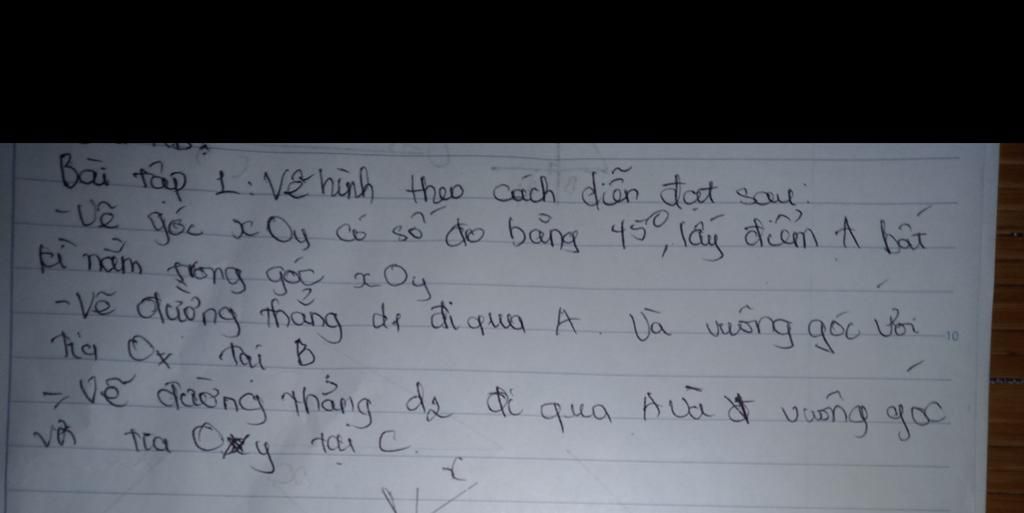 Bài tập 1: Vẽ hình theo cách diễn đạt sau:
- Vẽ góc xOy có số đo bằng 45°, lấy điểm A bất
kì nằm trong góc xOy
- Vẽ đường thẳng d1 đi qua A và vuông góc với
tia Ox tại B
- Vẽ đường thẳng d2 đi qua A và vuông góc
với tia Oy tại C.
x